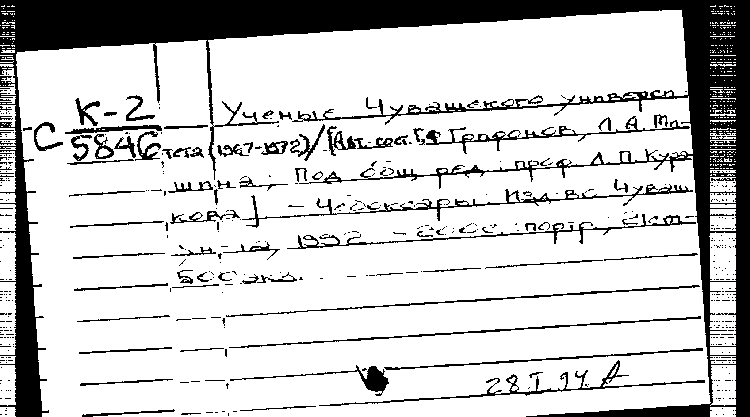 С К-2
5846
Ученые Чувашского универси
тета (1967-1972) / [Авт. сост. Г.Ф Трафонов, Л. А. Ми-
шина; Под общ ред. проф. Л. П. Кура
кова] - Чебоксары: Изд-во Чуваш
ун-та, 1992
портр.;
500 экз.
28.I.94.